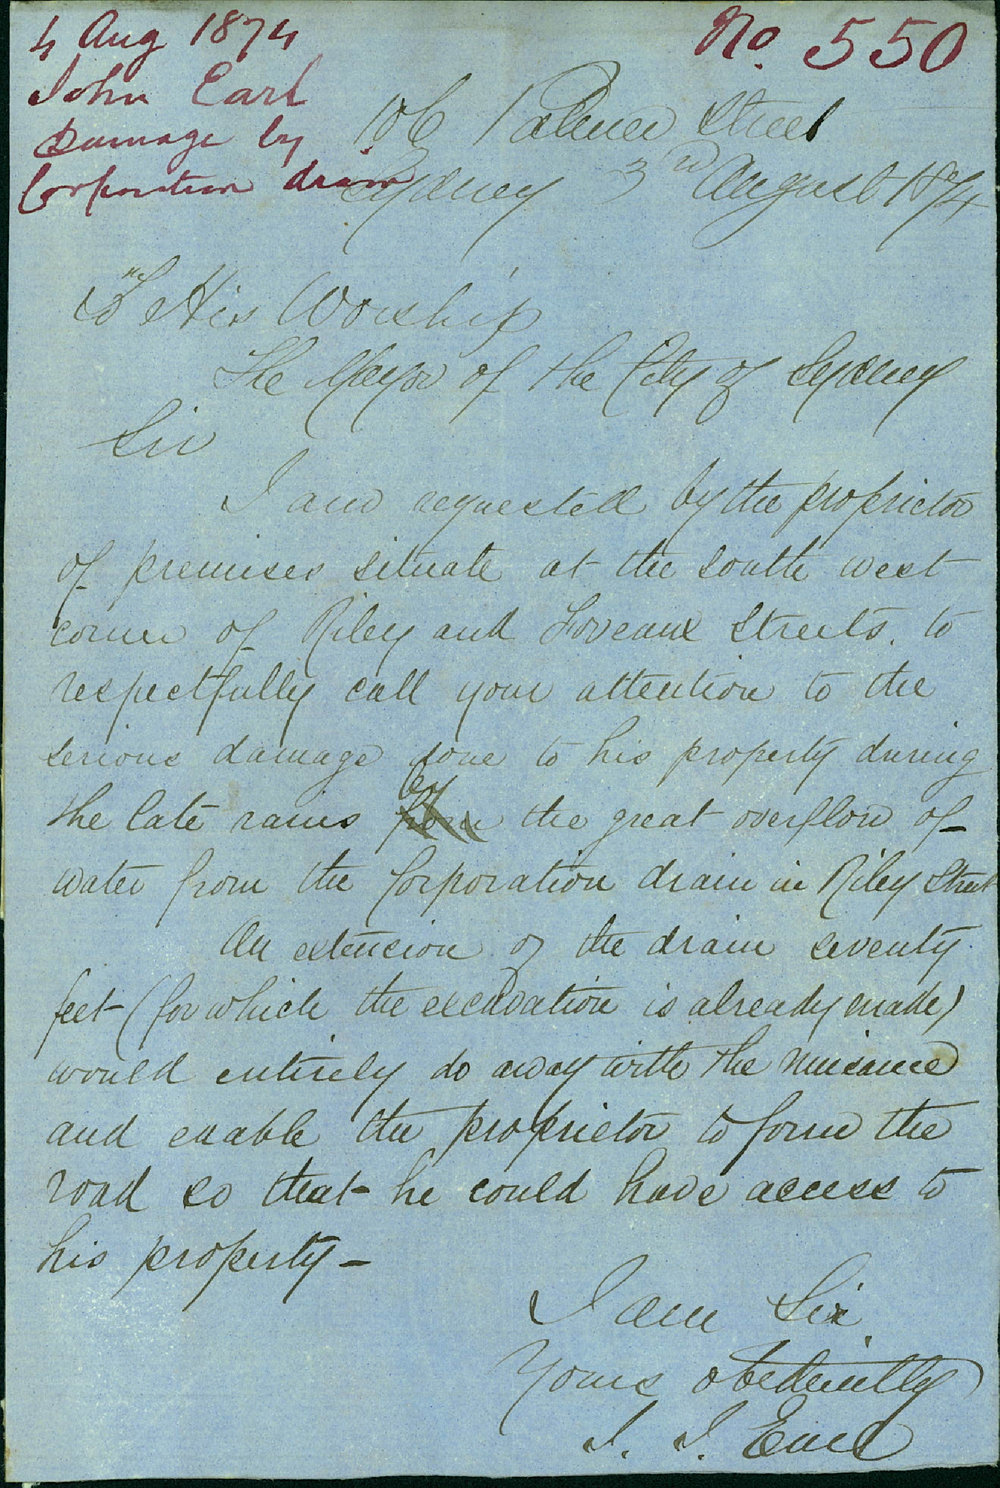 4 Aug 1874
John Earl
Damage by
Corporation drain
No. 550
106 Palmer Street
Sydney 3rd August 1874
To His Worship
The Mayor of the City of Sydney
Sir
I am requested by the proprietor
of premises situate at the south west
corner of Riley and Foveaux Streets. to
respectfully call your attention to the
serious damage done to his property during
the late rains from by the great overflow of
water from the Corporation drain in Riley Street
An extension of the drain seventy
feet (for which the excavation is already made)
would entirely do away with the nuisance
and enable the proprietor to form the
road so that he could have access to
his property –
I am Sir
Yours obediently
J. J. Earl